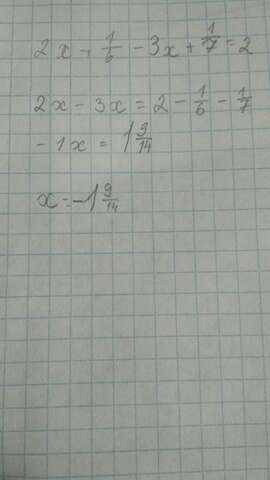 2x - 1/6 - 3x + 1/7 = 2
2x - 3x = 2 - 1/6 - 1/7
- 1x = 1 9/14
x = -1 9/14